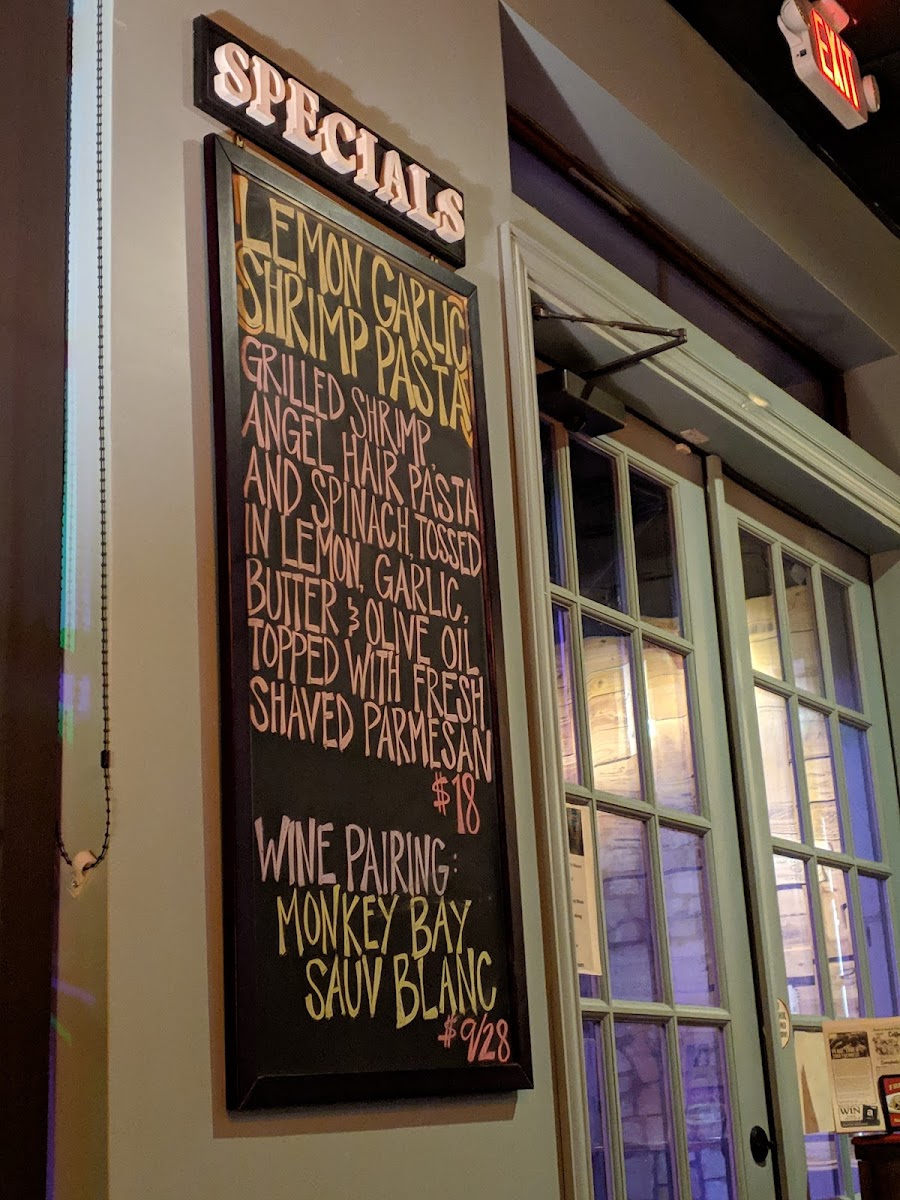 SPECIALS
EXIT
LEMON GARLIC
SHRIMP PASTA
GRILLED SHRIMP,
ANGEL HAIR PASTA
AND SPINACH, TOSSED
IN LEMON, GARLIC,
BUTTER & OLIVE OIL
TOPPED WITH FRESH
SHAVED PARMESAN
$18
WINE PAIRING:
MONKEY BAY
SAUV BLANC
$9/28
WIN